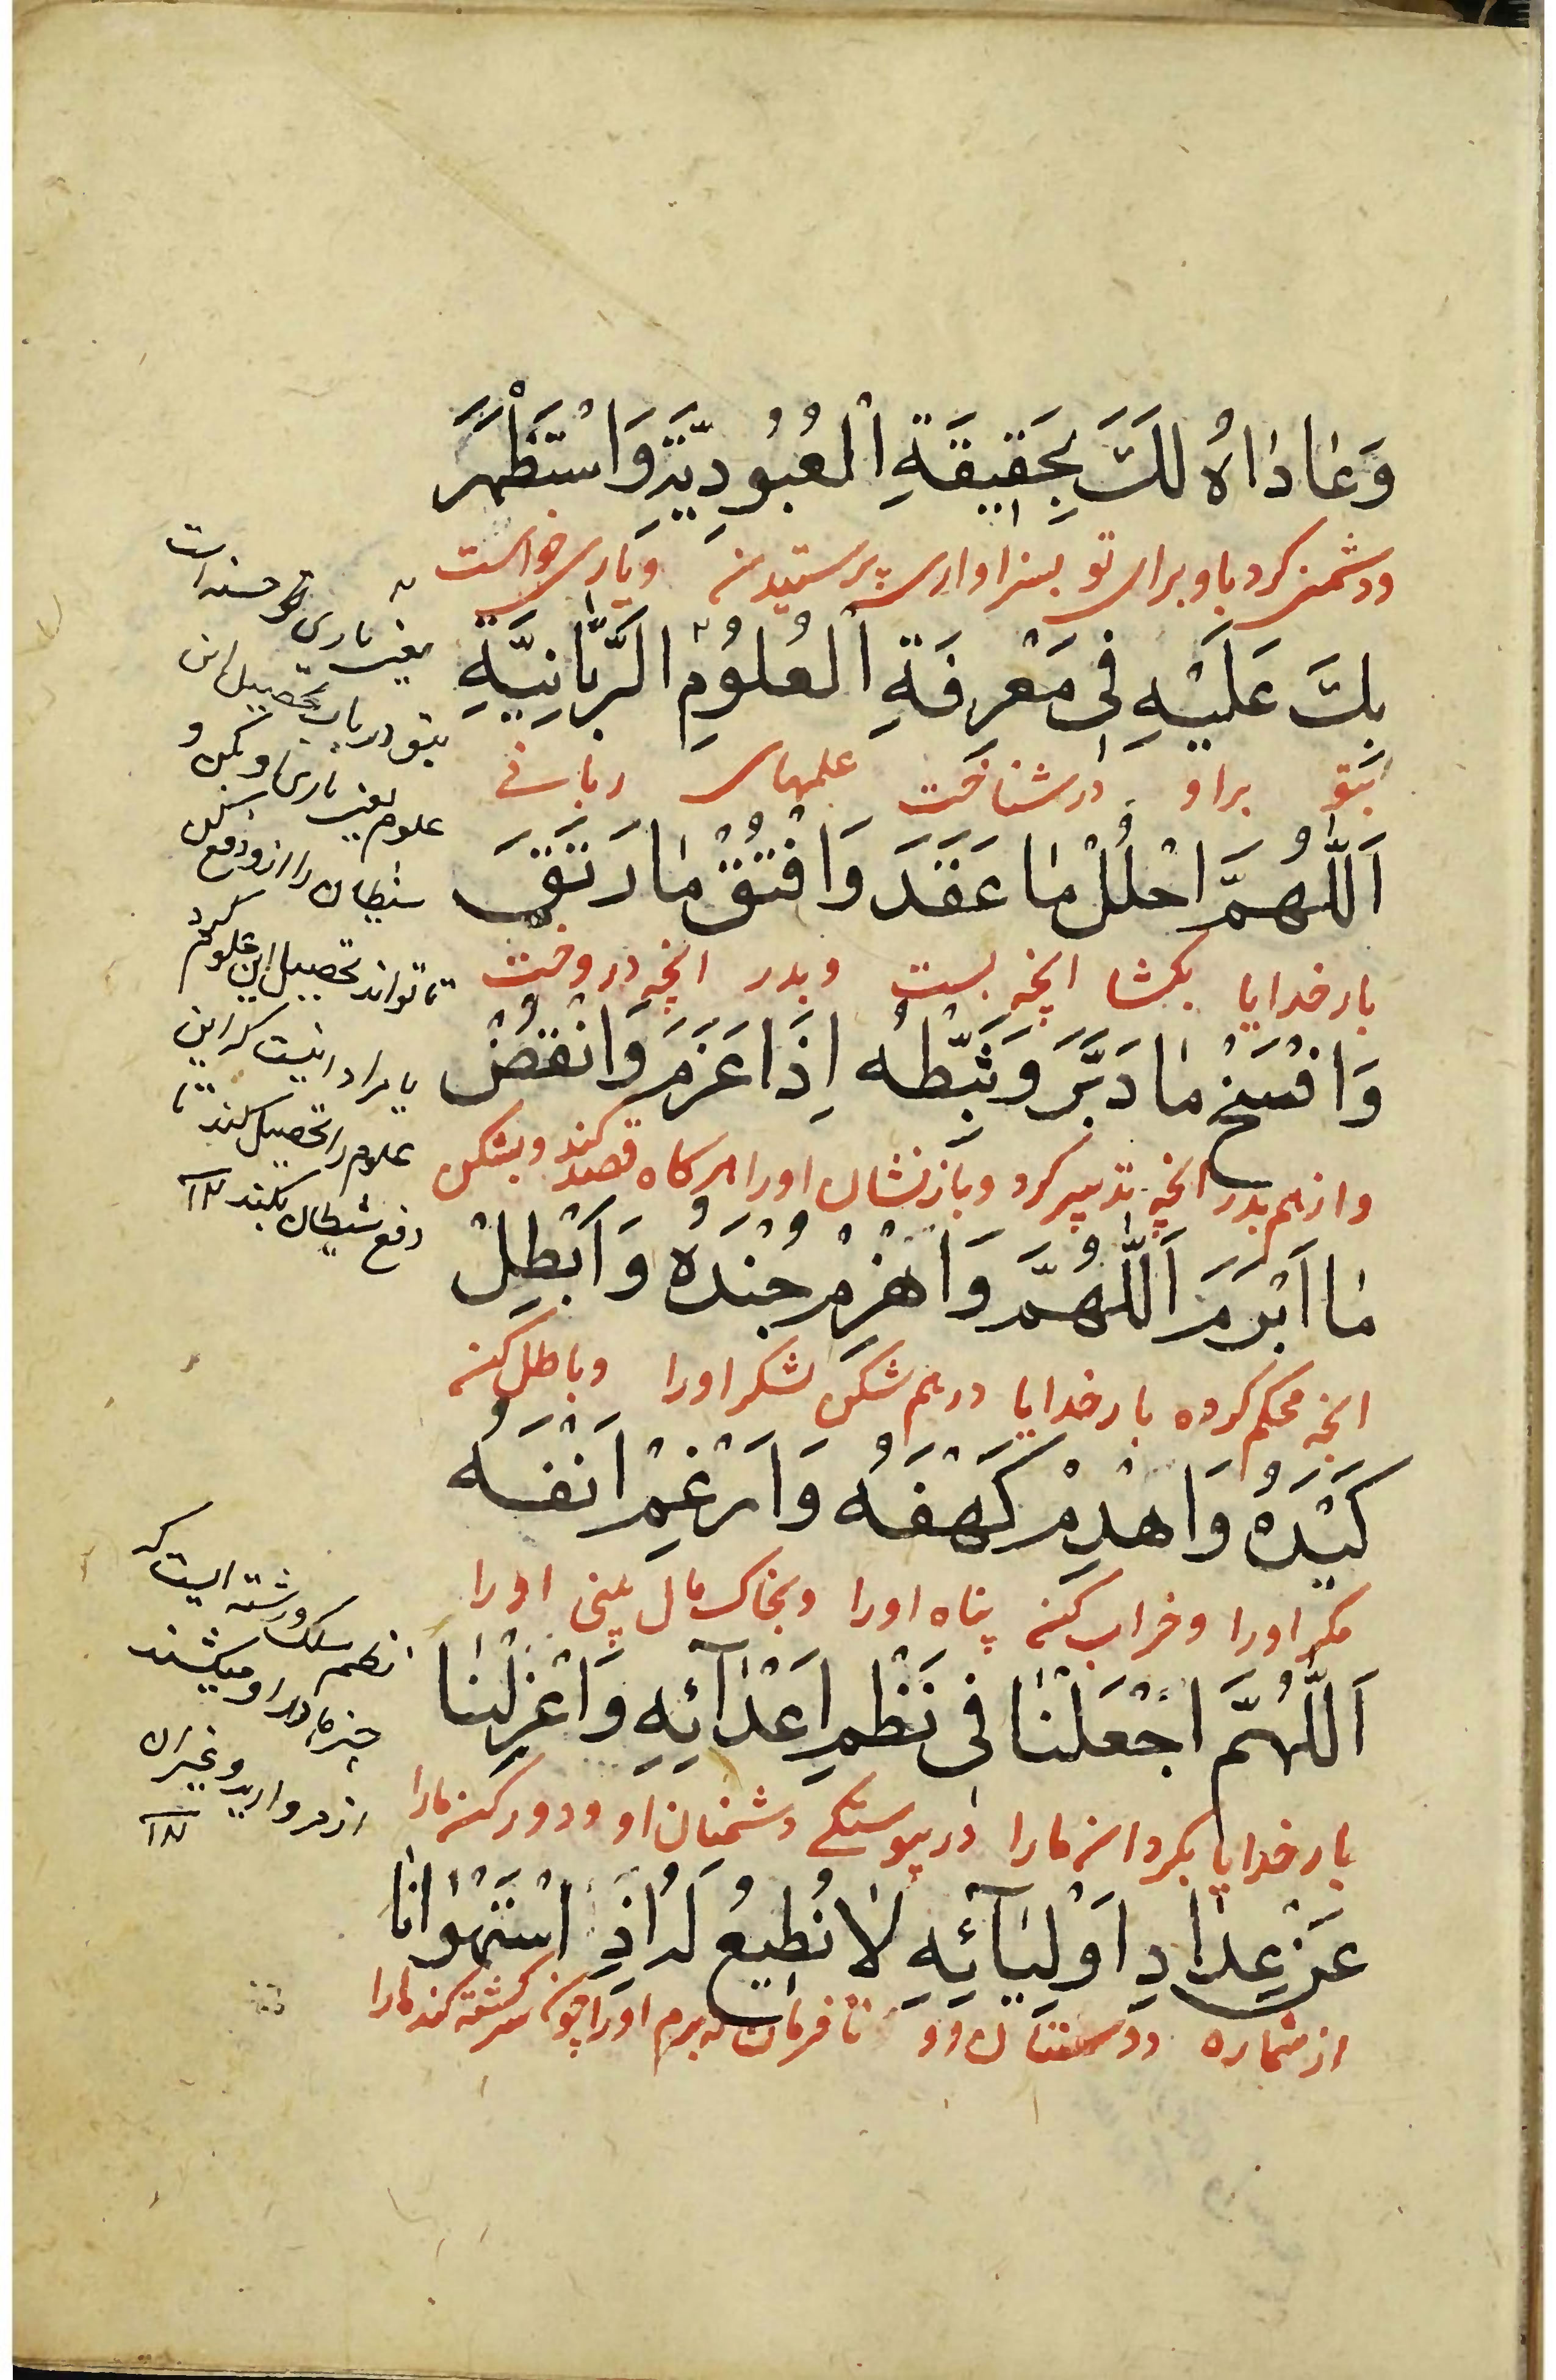 وَعَادَاهُ لَكَ بِحَقِيقَةِ الْعُبُودِيَّةِ وَاسْتَظْهَرَ
ودشمنی کرد باو برای تو بسزاواری پرستیدن ویاری خواست
بِكَ عَلَيْهِ فِي مَعْرِفَةِ الْعُلُومِ الرَّبَّانِيَّةِ
بتو براو در شناخت علمهای ربانی
اَللّٰهُمَّ احْلُلْ مَا عَقَدَ وَافْتُقْ مَا رَتَقَ
بار خدایا بکشا انچه بست وبدر انچه دروخت
وَافْسَخْ مَا دَبَّرَ وَثَبِّطْهُ اِذَا عَزَمَ وَانْقُضْ
وازهم بدر انچه تدبیر کرد وبازنشان اورا هرکاه قصد کند وبشکن
مَا اَبْرَمَ اَللّٰهُمَّ وَاهْزِمْ جُنْدَهُ وَاَبْطِلْ
انچه محکم کرده بار خدایا درهم شکن لشکر اورا وباطل کن
كَيْدَهُ وَاهْدِمْ كَهْفَهُ وَاَرْغِمْ اَنْفَهُ
مکر اورا وخراب کن پناه اورا وبخاک مال بینی اورا
اَللّٰهُمَّ اجْعَلْنَا فِي نَظْمِ اَعْدَآئِهِ وَاعْزِلْنَا
بار خدایا بکردان مارا در پیوستکی دشمنان او ودور کن مارا
عَنْ عِدَادِ اَوْلِيَآئِهِ لَا نُطِيعُ لَهُ اِذِ اسْتَهْوَانَا
از شماره دوستان او تا فرمان نه بریم اورا چون سرکشته کند مارا
یعنی یاری خواسته است
بتو در باب تحصیل این
علوم یعنی یاری او بکن و
شیطان را از او دفع کن
تا تواند تحصیل این علوم کرد
یا مراد اینست که این
علوم را تحصیل کند تا
دفع شیطان بکند ۱۲
نظم سلک ورشته ایست که
چیزها را در او میکشند
از مروارید وغیر ان
۱۲